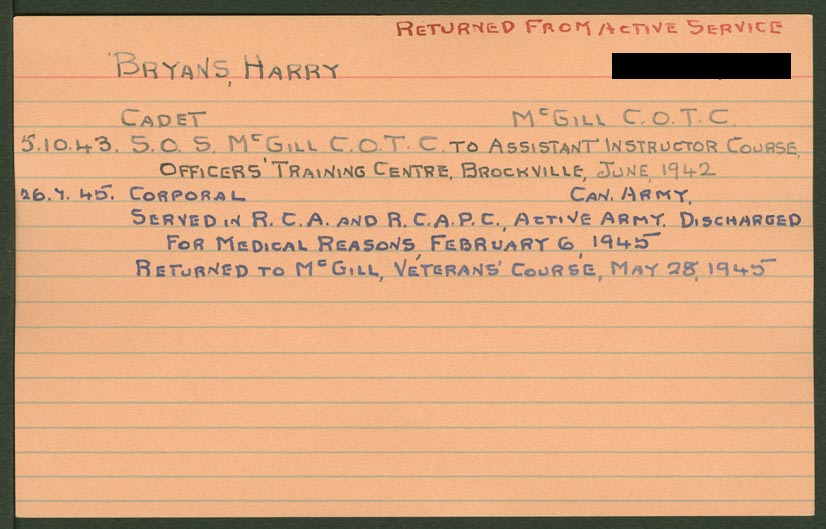 RETURNED FROM ACTIVE SERVICE
BRYANS, HARRY
CADET McGILL C.O.T.C.
5.10.43. S.O.S. McGILL C.O.T.C. TO ASSISTANT INSTRUCTOR COURSE,
OFFICERS' TRAINING CENTRE, BROCKVILLE, JUNE, 1942
26.7.45. CORPORAL CAN. ARMY.
SERVED IN R.C.A. AND R.C.A.P.C., ACTIVE ARMY. DISCHARGED
FOR MEDICAL REASONS, FEBRUARY 6, 1945
RETURNED TO McGILL, VETERANS' COURSE, MAY 28, 1945